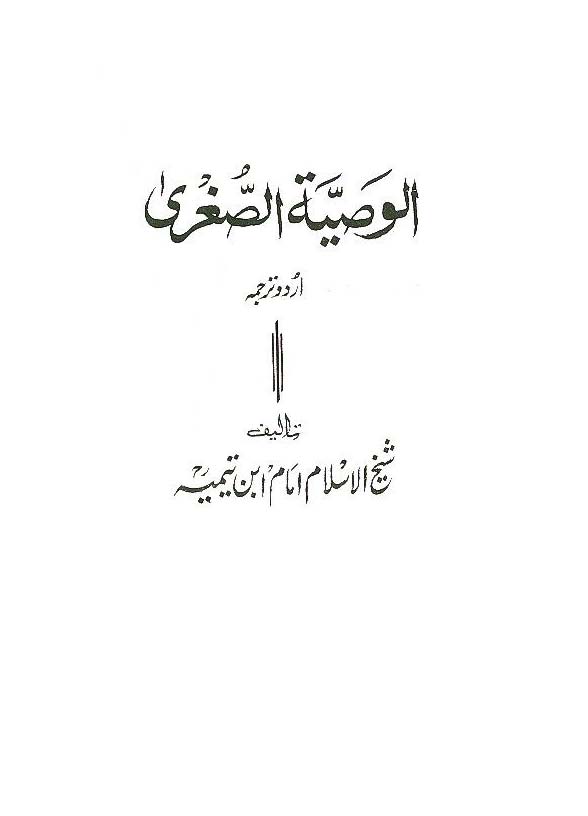 الوَصِیَّة الصُّغْریٰ
اُردو ترجمہ
تالیف
شیخ الاسلام امام ابن تیمیہؒ